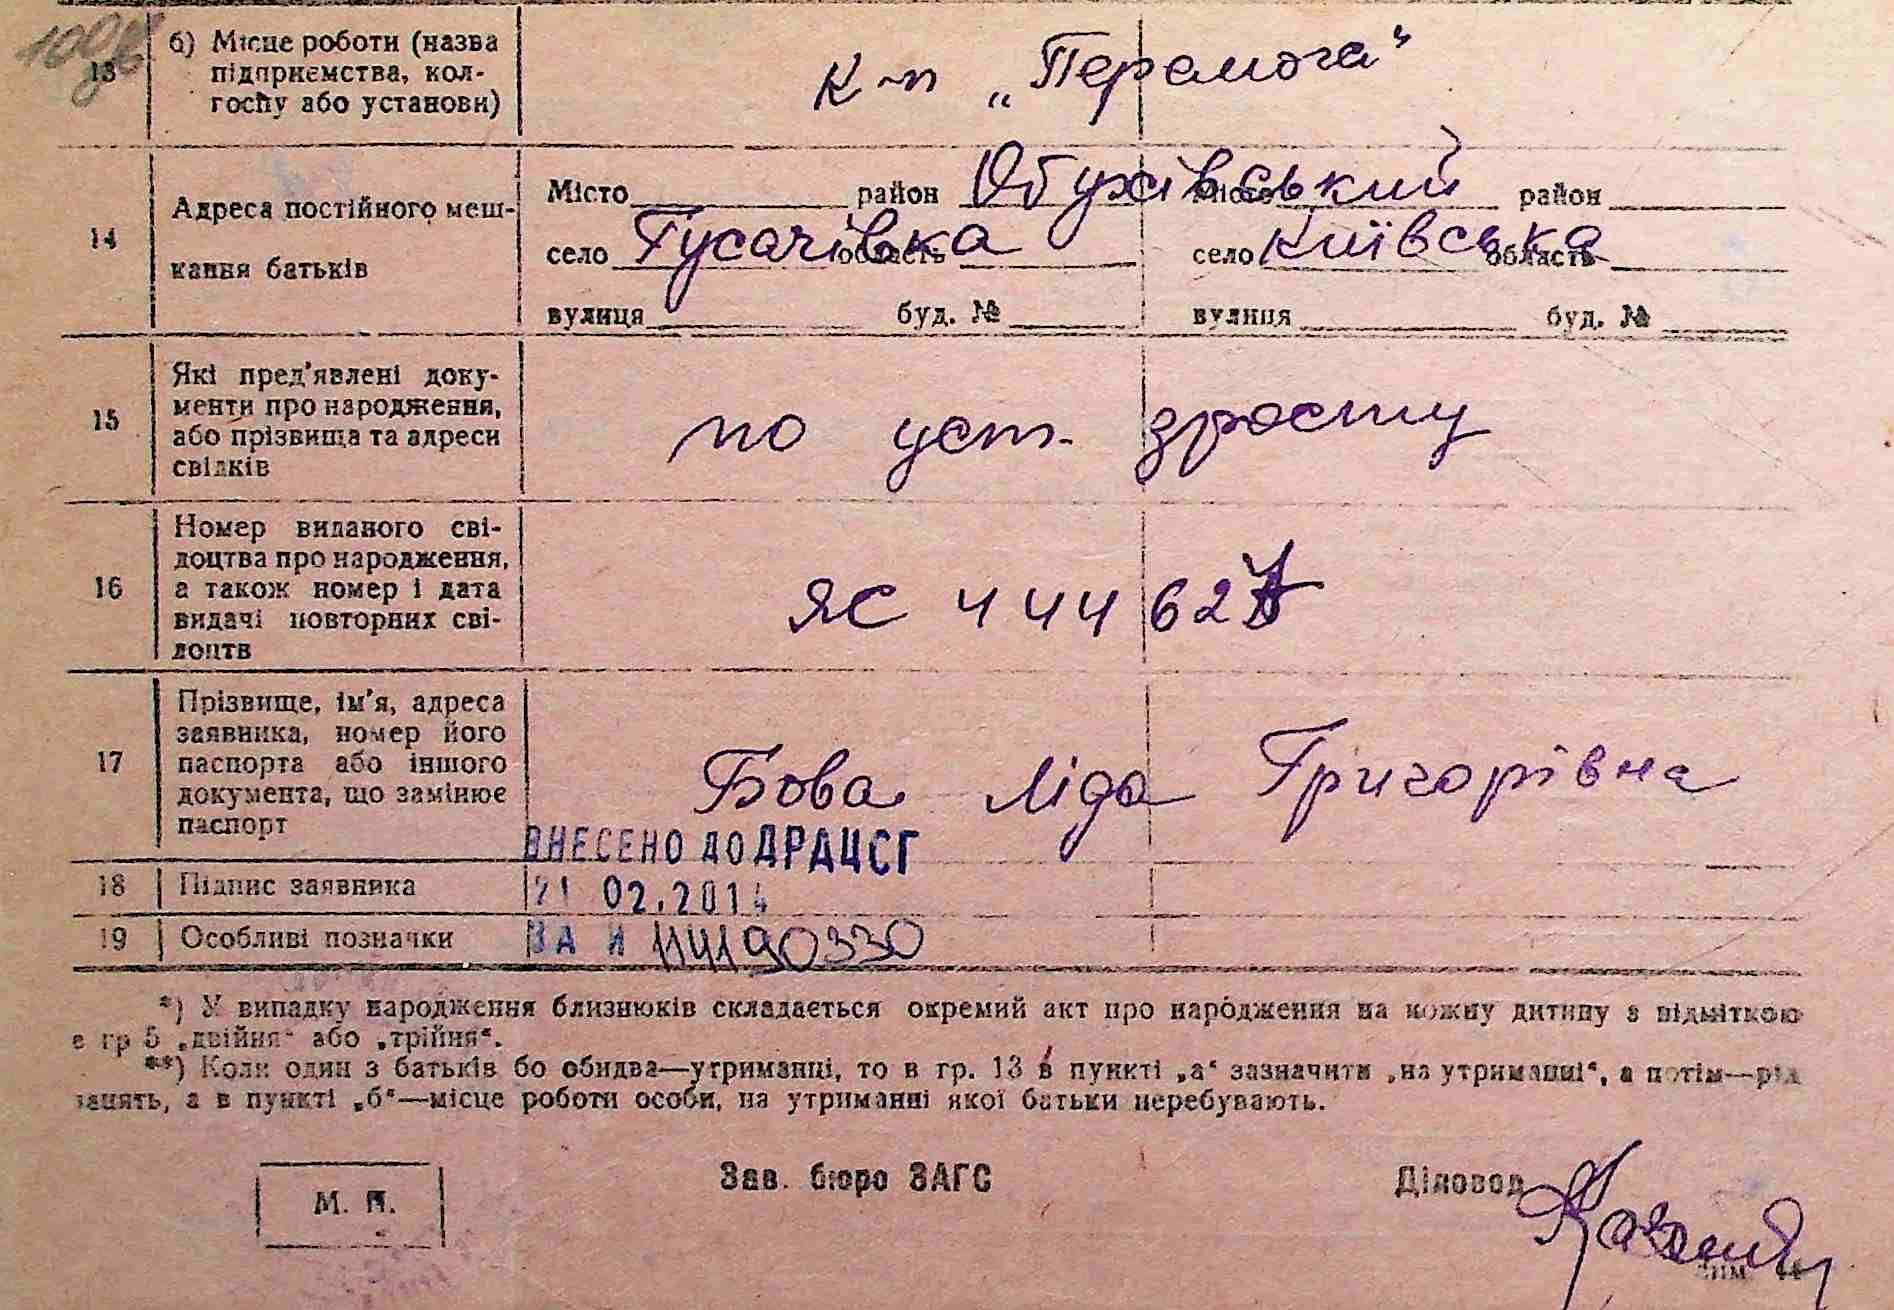 13
б) Місце роботи (назва
підприємства, кол-
госпу або установи)
к-п „Перемога"
14
Адреса постійного меш-
кання батьків
Місто район Обухівський Місто район
село Гусачівка область село Київська область
вулиця буд. № вулиця буд. №
15
Які пред'явлені доку-
менти про народження,
або прізвища та адреси
свідків
по уст. зросту
16
Номер виданого сві-
доцтва про народження,
а також номер і дата
видачі повторних сві-
доцтв
ЯС 444627
17
Прізвище, ім'я, адреса
заявника, номер його
паспорта або іншого
документа, що замінює
паспорт
Бова Ліда Григорівна
ВНЕСЕНО ДО ДРАЦСГ
18 Підпис заявника
21 02.2014
19 Особливі позначки
ЗА №
*) У випадку народження близнюків складається окремий акт про народження на кожну дитину з відміткою
в гр 5 „двійня“ або „трійня“.
**) Коли один з батьків бо обидва—утриманці, то в гр. 13 в пункті „а“ зазначити „на утриманні“, а потім—рід
занять, а в пункті „б“—місце роботи особи, на утриманні якої батьки перебувають.
М. П.
Зав. бюро ЗАГС
Діловод